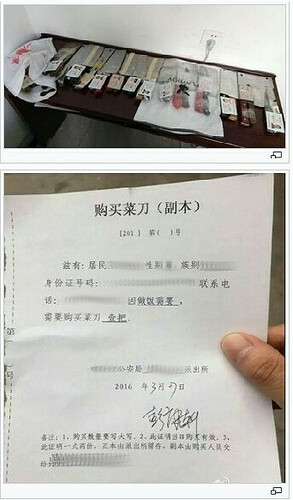 购买菜刀（副本）
[201 ] 第( )号
兹有：居民 性别 族别
身份证号码： 联系电
话： 因做饭需要，
需要购买菜刀 壹把.
公安局 派出所
2016 年3月27日
备注：1、购买数量要写大写。2、此证明当日购买有效。3、
此证明一式两份，正本由派出所留存，副本由购买人员交
给
第
号